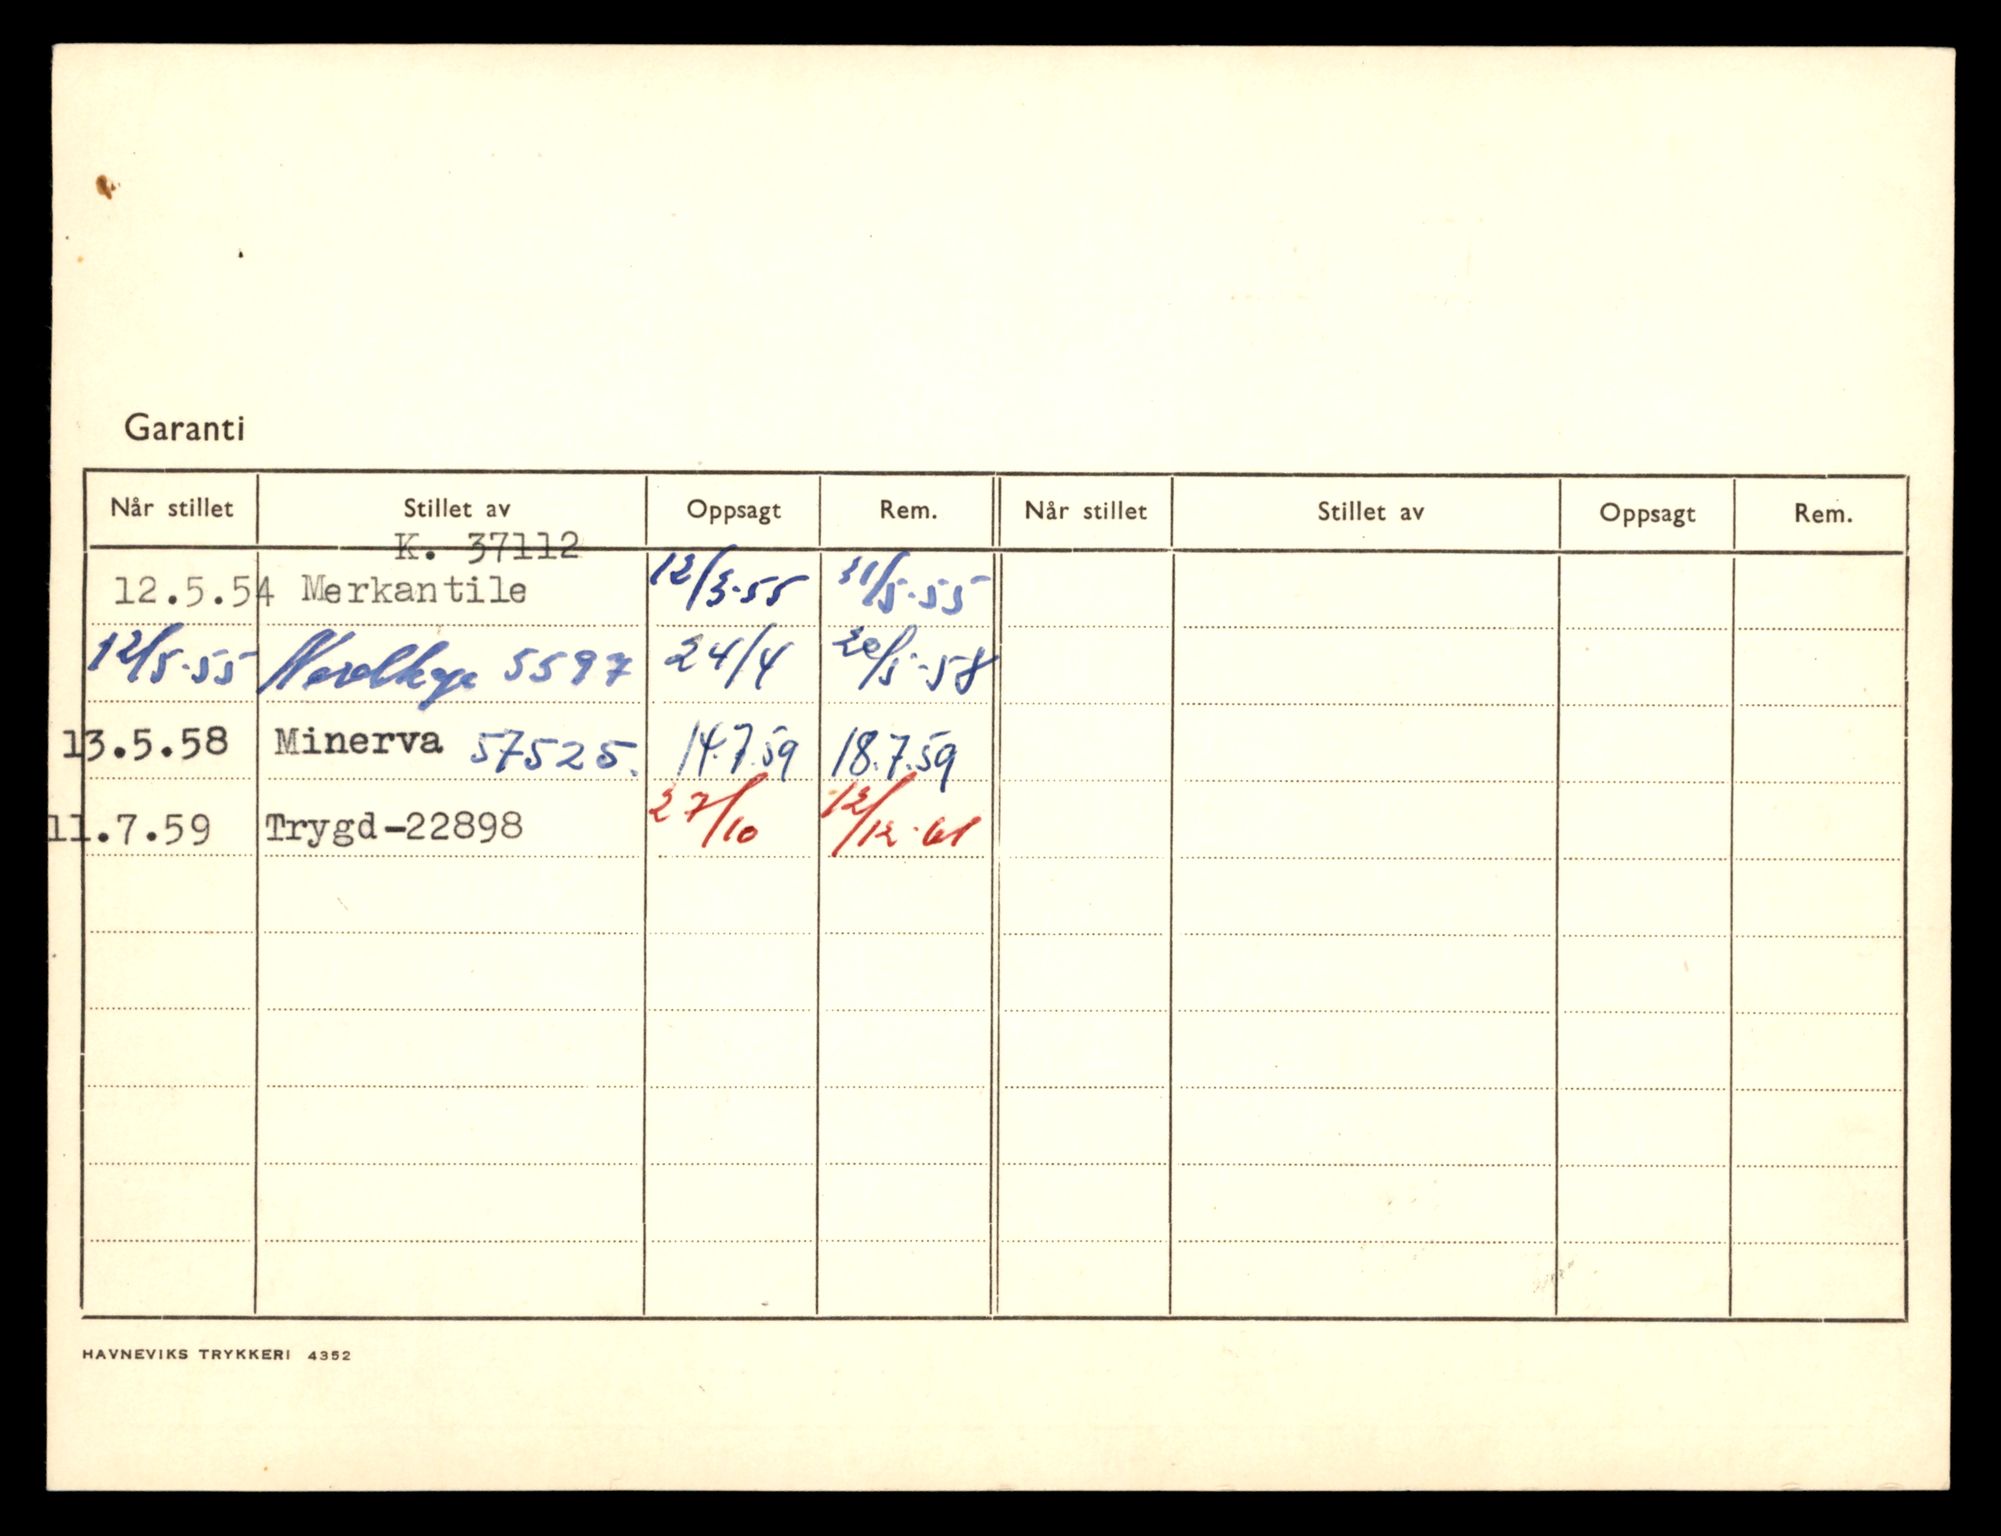 Garanti
Når stillet Stillet av Oppsagt Rem. Når stillet Stillet av Oppsagt Rem.
K. 37112
12.5.54 Merkantile 12/3-55 31/5-55
12/5-55 5597 24/4 20/5-58
13.5.58 Minerva 57525. 14.7.59 18.7.59
11.7.59 Trygd-22898 27/10 12/12-61
HAVNEVIKS TRYKKERI 4352